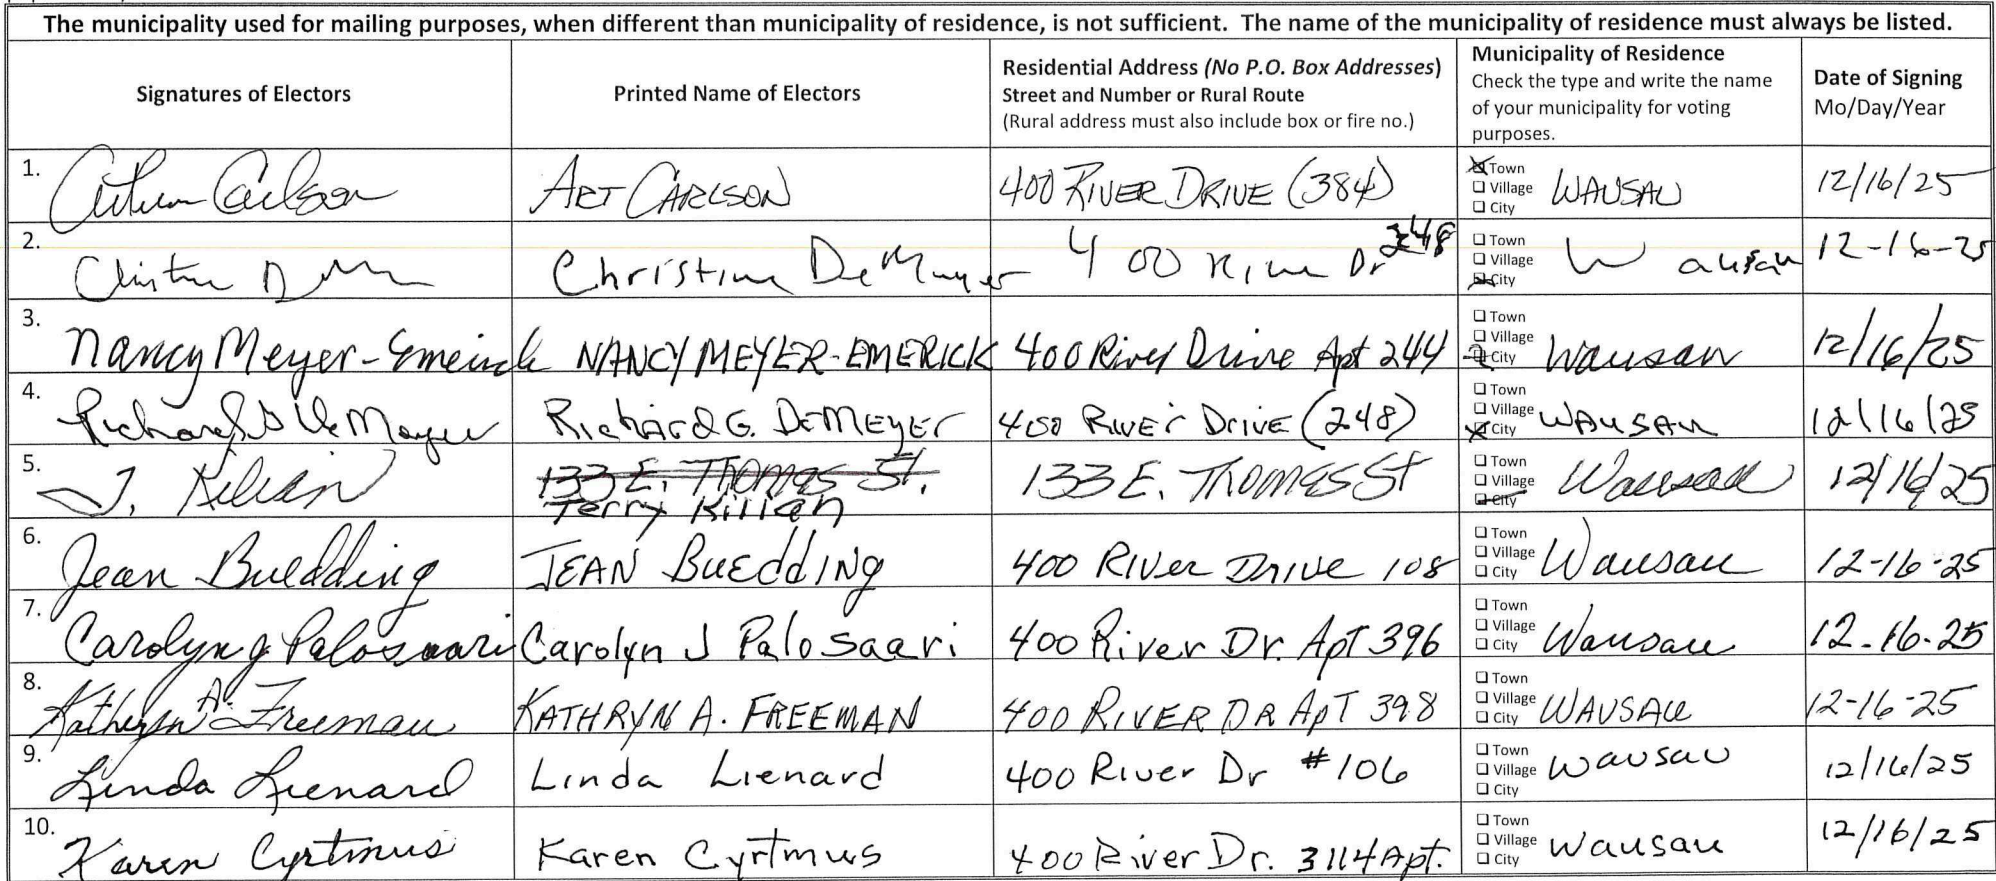 The municipality used for mailing purposes, when different than municipality of residence, is not sufficient. The name of the municipality of residence must always be listed.
Signatures of Electors
Printed Name of Electors
Residential Address (No P.O. Box Addresses)
Street and Number or Rural Route
(Rural address must also include box or fire no.)
Municipality of Residence
Check the type and write the name
of your municipality for voting
purposes.
Date of Signing
Mo/Day/Year
1. Arthur Carlson ART CARLSON 400 RIVER DRIVE (384) Town Village City WAUSAU 12/16/25
2. Christine Christine DeMeyer 400 River Dr 248 Town Village City Wausau 12-16-25
3. Nancy Meyer-Emerick NANCY MEYER-EMERICK 400 River Drive Apt 244 Town Village City Wausau 12/16/25
4. Richard G DeMeyer RichARd G. DeMEYER 400 RIVER DRIVE (248) Town Village City WAUSAU 12/16/25
5. T. Kilian 133 E. THOMAS St. Terry Kilian 133 E. THOMAS St Town Village City Wausau 12/16/25
6. Jean Buedding JEAN BUEddING 400 RIVER DRIVE 108 Town Village City Wausau 12-16-25
7. Carolyn J Palosaari Carolyn J Palosaari 400 River Dr. Apt 396 Town Village City Wausau 12-16-25
8. Kathryn A. Freeman KATHRYN A. FREEMAN 400 RIVER DR APT 398 Town Village City WAUSAU 12-16-25
9. Linda Lienard Linda Lienard 400 River Dr #106 Town Village City Wausau 12/16/25
10. Karen Cyrtmus Karen Cyrtmus 400 River Dr. 3114 Apt. Town Village City Wausau 12/16/25